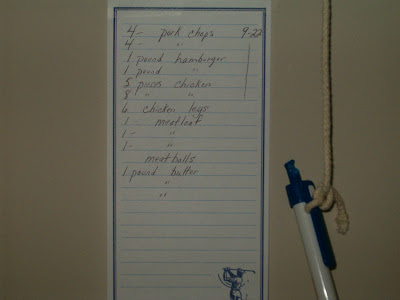 4 - pork chops 9-22
4 - "
1 pound hamburger
1 pound "
5 pieces chicken
8 " "
6 chicken legs
1 - meatloaf
1 - "
1 - "
meatballs
1 pound butter
"
"